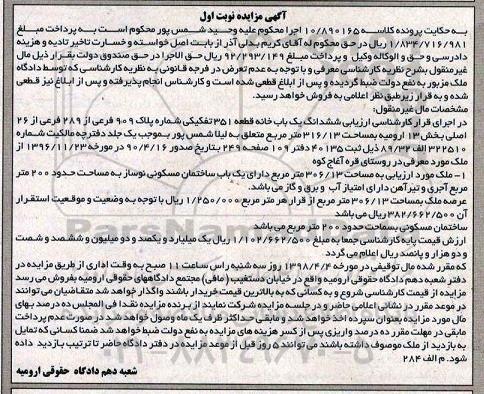 آگهی مزایده نوبت اول
به حکایت پرونده کلاسه ۱۰/۸۹۰۱۶۵ اجرا محکوم علیه وحید شمس پور محکوم است به پرداخت مبلغ
۱/۸۳۴/۷۱۶/۹۸۱ ریال در حق محکوم له آقای کریم بدلی آذر از بابت اصل خواسته و خسارت تاخیر تادیه و هزینه
دادرسی و حق الوکاله وکیل و پرداخت مبلغ ۹۲/۲۹۳/۱۴۹ ریال حق الاجرا در حق صندوق دولت بقرار ذیل مال
غیر منقول بشرح نظریه کارشناسی معرفی و با توجه به عدم تعرض در فرجه قانونی به نظریه کارشناسی که توسط دادگاه
ملک مزبور به نفع دولت ضبط گردیده و پس از ابلاغ قطعی شده است و کارشناس انجام پذیرفته و پس از ابلاغ نیز قطعی
شده و به قرار زیر طبق نظر اعلامی به فروش خواهد رسید.
مشخصات مال غیر منقول:
در اجرای قرار کارشناسی ارزیابی ششدانگ یک باب خانه قطعه ۳۵۱ تفکیکی شماره پلاک ۹۰۹ فرعی از ۲۸۹ فرعی از ۲۶
اصلی بخش ۱۳ ارومیه بمساحت ۳۱۶/۱۳ متر مربع متعلق به لیلا شمس پور بموجب یک جلد دفترچه مالکیت شماره
۳۲۲۵۱۰ الف ۸۹/۳۳ ذیل ثبت ۴۰۱۳۵ دفتر ۱۰۹ صفحه ۲۴۹ بتاریخ صدور ۹۰/۴/۱۶ در مورخه ۱۳۹۶/۱۱/۲۳ از
ملک مورد معرفی در روستای قره آغاج کوه
۱- ملک مورد ارزیابی به مساحت ۳۰۶/۱۳ متر مربع دارای یک باب ساختمان مسکونی نوساز به مساحت حدود ۲۰۰ متر
مربع آجری و تیرآهن دارای امتیاز آب و برق و گاز می باشد.
عرصه ملک بمساحت ۳۰۶/۱۳ متر مربع از قرار هر متر مربع ۱/۲۵۰/۰۰۰ ریال با توجه به وضعیت و موقعیت استقرار
آن ۳۸۲/۶۶۲/۵۰۰ ریال می باشد
ساختمان مسکونی بمساحت حدود ۲۰۰ متر مربع می باشد
ارزش قیمت پایه کارشناسی جمعا به مبلغ ۱/۱۰۲/۶۶۲/۵۰۰ ریال یک میلیارد و یکصد و دو میلیون و ششصد و شصت
و دو هزار و پانصد ریال اعلام می گردد
که مقرر شده مال توقیفی در مورخه ۱۳۹۸/۴/۴ روز سه شنبه راس ساعت ۱۱ صبح به وقت اداری از طریق مزایده در
دفتر شعبه دهم دادگاه حقوقی ارومیه واقع در خیابان دستغیب (مافی) مجتمع دادگاههای حقوقی ارومیه بفروش می رسد
مزایده از قیمت کارشناسی شروع و به کسانی که به بالاترین قیمت خریدار باشند واگذار خواهد شد متقاضیان می توانند
در موعد مقرر در نشانی اعلامی حاضر و در جلسه مزایده شرکت نمایند از برنده مزایده نقدا فی المجلس ده درصد بهای
مال مورد مزایده بعنوان سپرده اخذ خواهد شد و مابقی حداکثر ظرف یک ماه وصول خواهد شد و در صورت عدم پرداخت
مابقی در مهلت مقرر ده درصد واریزی پس از کسر هزینه های مزایده به نفع دولت ضبط خواهد شد ضمنا کسانی که تمایل
به بازدید از ملک موصوف داشته باشند می توانند ۵ روز قبل از موعد مزایده در دفتر دادگاه حاضر تا ترتیب بازدید داده
شود. م الف ۲۸۴
شعبه دهم دادگاه حقوقی ارومیه